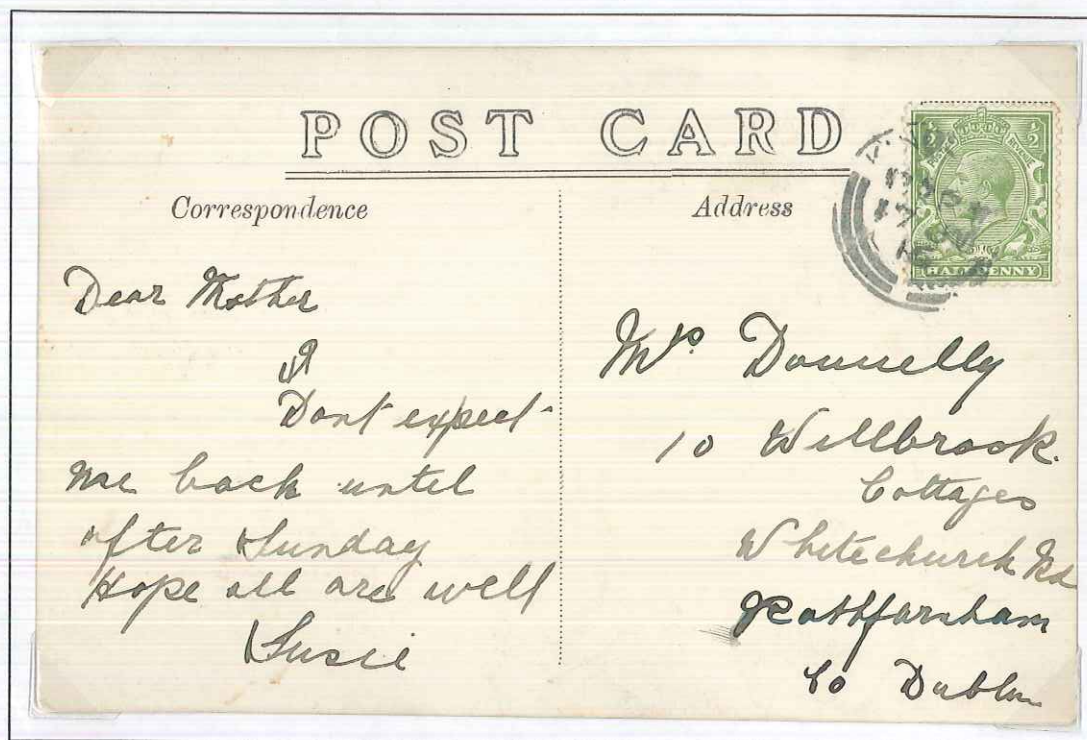 POST CARD
Correspondence
Dear Mother
I
Dont expect
me back until
after Sunday
Hope all are well
Susie
Address
Mrs Donnelly
10 Willbrook.
Cottages
Whitechurch Rd
Rathfarnham
Co Dublin
HALFPENNY